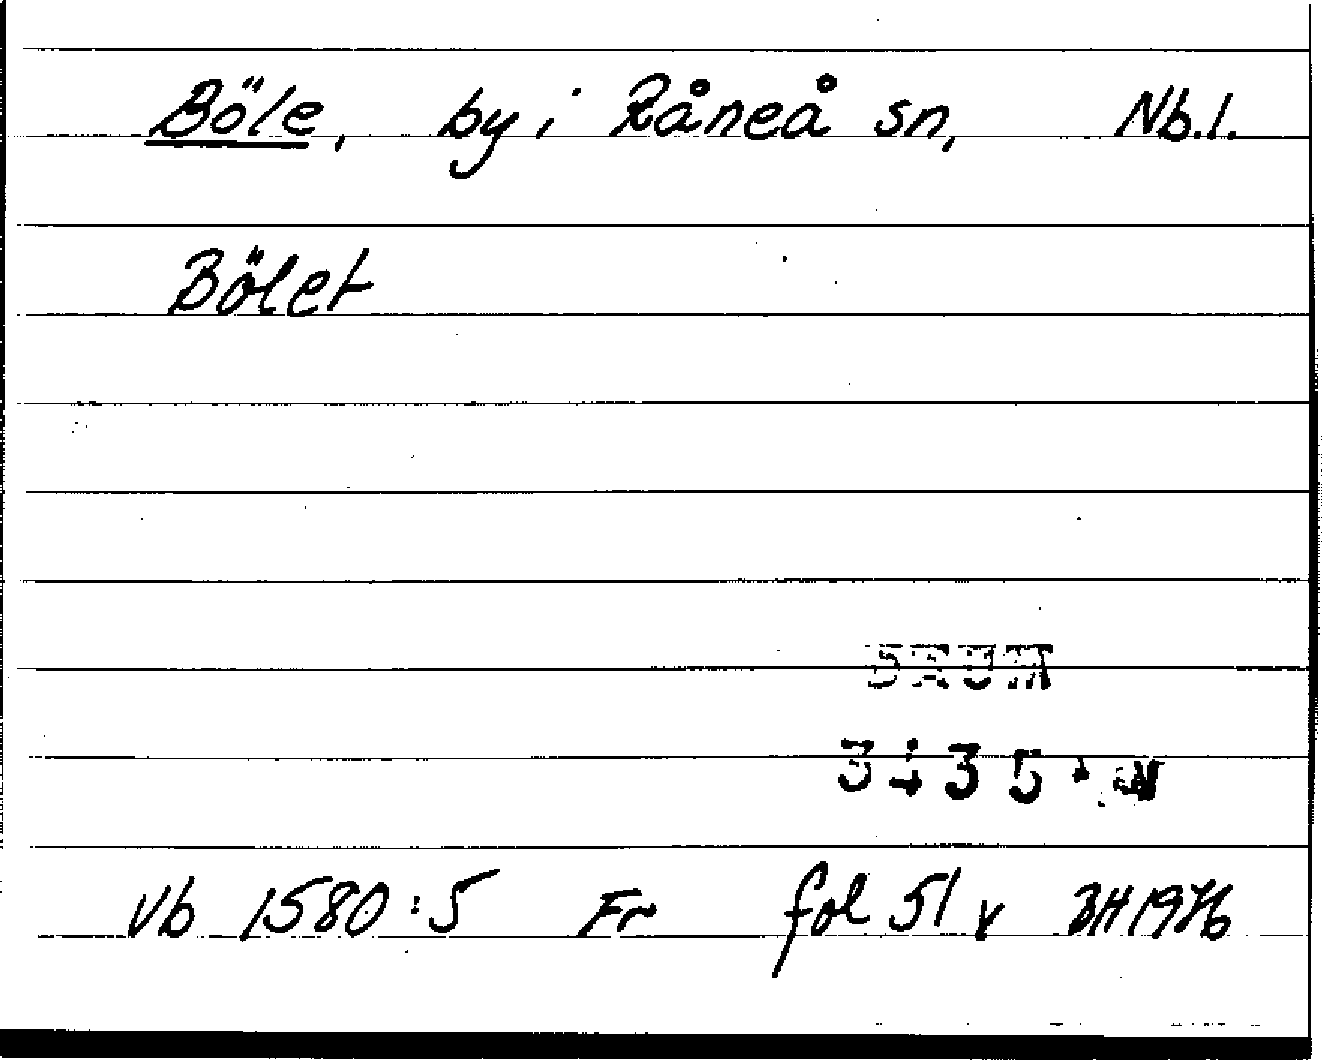 Böle, by i Råneå sn, Nb.l.
Bölet
Vb 1580:5 Fr fol 51 v BH 1976